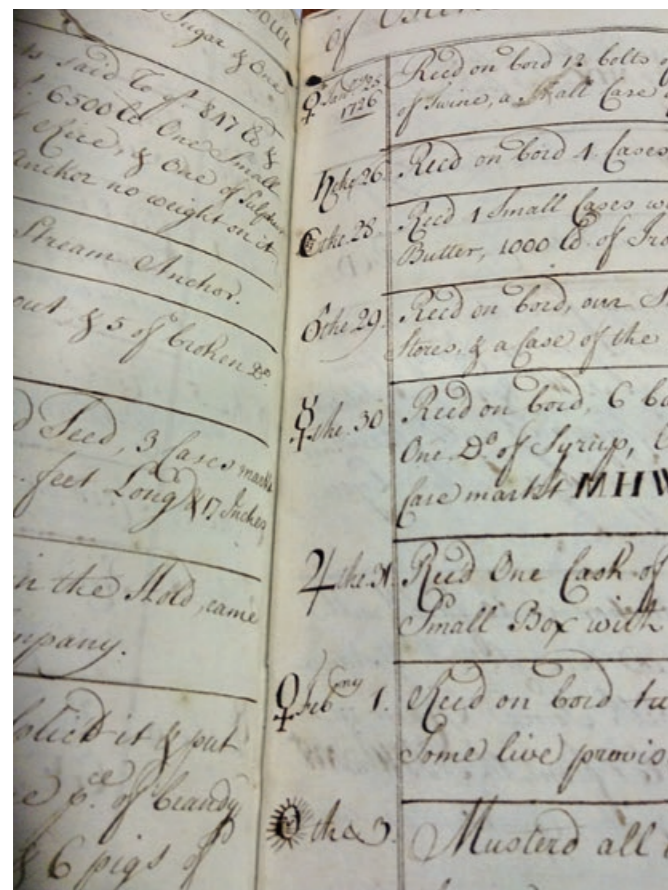 Sugar & One
said To p.r 847 lb &
6500 lb One Small
Rice, & One of Sulphur
anchor no weight on it
Stream Anchor.
out & 5 of broken D.o
Seed, 3 Cases markt
feet Long & 17 Inches
in the Hold, came
mpany.
it & put
p.ce of brandy
& 6 pigs of
of Osten
♀ Jan.ry 25 1726
Recd on bord 12 bolts
of twine, a Small Case
♄ the 26
Recd on bord 4 Cases
☾ the 28
Recd 1 Small Cases
Butter, 1000 lb. of
♂ the 29.
Recd on bord, our
Stores, & a Case of the
☿ the 30
Recd on bord, 6
One D.o of Syrup,
Case markt MHW
♃ the 31
Recd One Cask of
Small Box with
♀ Feb.ry 1.
Recd on bord
Some live provis
☉ the 3.
Musterd all